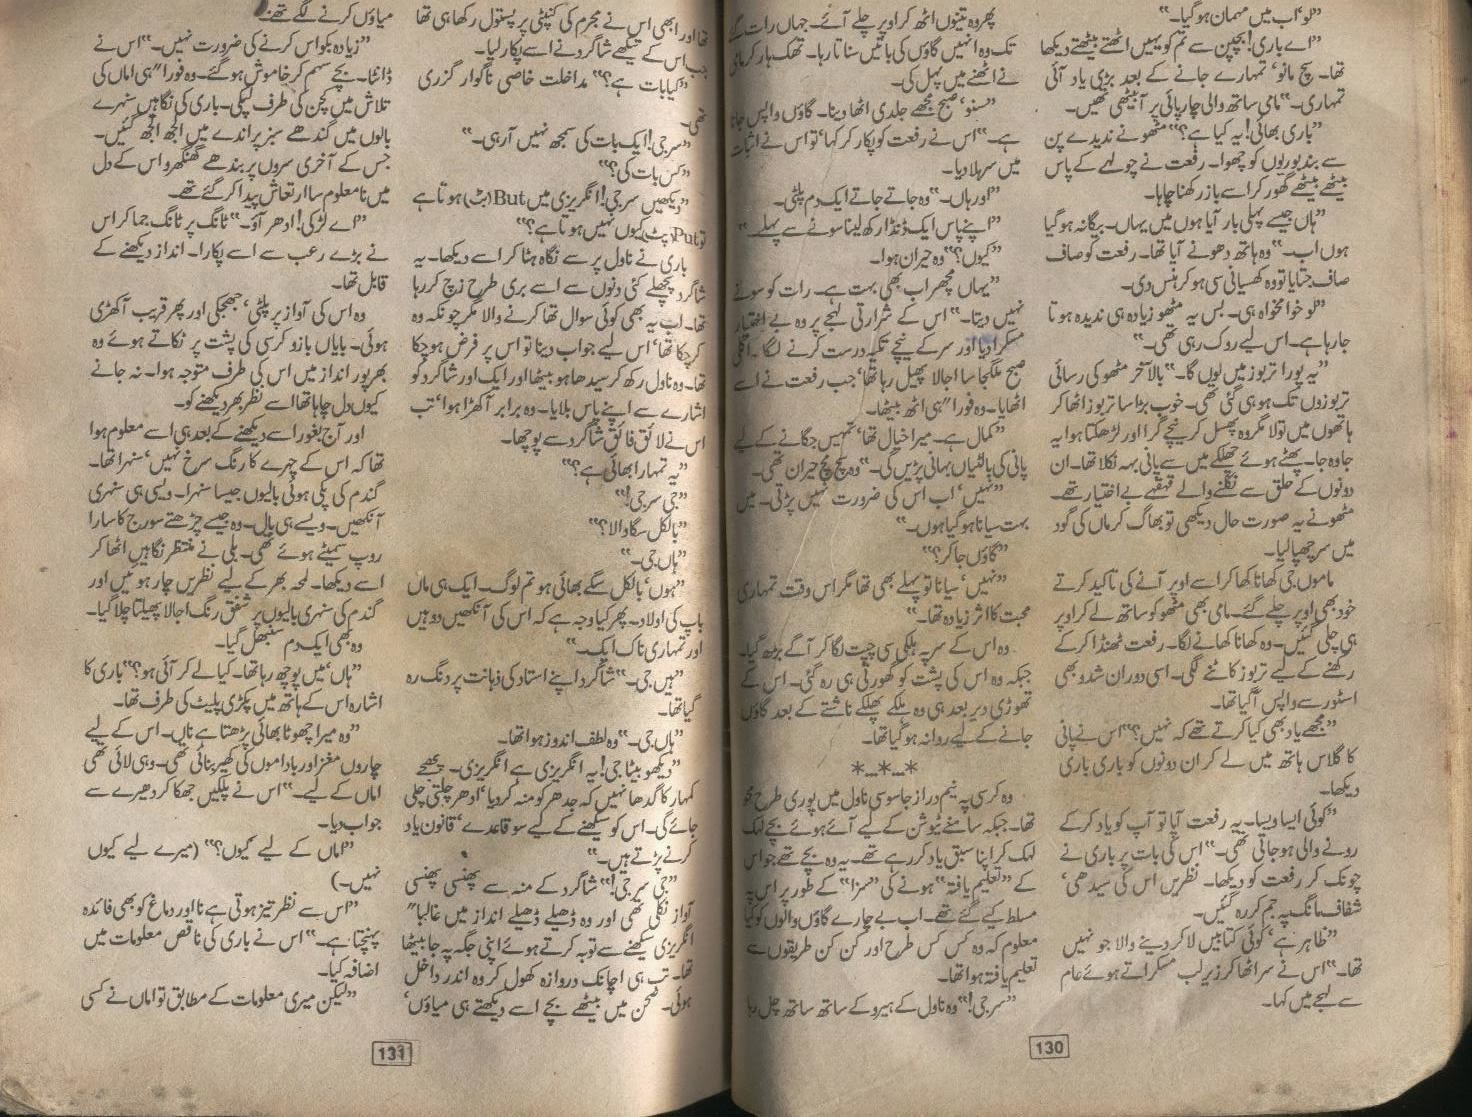 ”لو‘ اب میں مہمان ہو گیا۔“
”اے باری! بچپن سے تم کو یہیں اٹھتے بیٹھتے دیکھا
تھا۔ سچ مانو‘ تمہارے جانے کے بعد بڑی یاد آئی
تمہاری۔“ مامی ساتھ والی چارپائی پر آبیٹھی تھیں۔
”باری بھائی! یہ کیا ہے؟“ مٹھو نے ندیدے پن
سے بند بوریوں کو چھوا۔ رفعت نے چولہے کے پاس
بیٹھے بیٹھے گھور کر اسے باز رکھنا چاہا۔
”ہاں جیسے پہلی بار آیا ہوں میں یہاں۔ بیگانہ ہو گیا
ہوں اب۔“ وہ ہاتھ دھونے آیا تھا۔ رفعت کو صاف
صاف جتایا تو وہ کھسیانی سی ہو کر ہنس دی۔
”لو خوامخواہ ہی۔ بس یہ مٹھو زیادہ ہی ندیدہ ہوتا
جا رہا ہے۔ اس لیے روک رہی تھی۔“
”یہ پورا تربوز میں لوں گا۔“ بالآخر مٹھو کی رسائی
تربوزوں تک ہو ہی گئی تھی۔ خوب بڑا سا تربوز اٹھا کر
ہاتھوں میں تولا مگر وہ پھسل کر نیچے گرا اور لڑھکتا ہوا یہ
جا وہ جا۔ پھٹے ہوئے چھلکے میں سے پانی بہہ نکلا تھا۔ ان
دونوں کے حلق سے نکلنے والے قہقہے بے اختیار تھے۔
مٹھو نے یہ صورت حال دیکھی تو بھاگ کر ماں کی گود
میں سر چھپا لیا۔
ماموں جی کھانا کھا کر اسے اوپر آنے کی تاکید کرتے
خود بھی اوپر چلے گئے۔ مامی بھی مٹھو کو ساتھ لے کر اوپر
ہی چلی گئیں۔ وہ کھانا کھانے لگا۔ رفعت ٹھنڈا کر کے
رکھنے کے لیے تربوز کاٹنے لگی۔ اسی دوران شدو بھی
اسٹور سے واپس آ گیا تھا۔
”مجھے یاد بھی کیا کرتے تھے کہ نہیں؟“ اس نے پانی
کا گلاس ہاتھ میں لے کر ان دونوں کو باری باری
دیکھا۔
”کوئی ایسا ویسا۔ یہ رفعت آپا تو آپ کو یاد کر کے
رونے والی ہو جاتی تھی۔“ اس کی بات پر باری نے
چونک کر رفعت کو دیکھا۔ نظریں اس کی سیدھی‘
شفاف مانگ پہ جم کر رہ گئیں۔
”ظاہر ہے‘ کوئی کتابیں لا کر دینے والا جو نہیں
تھا۔“ اس نے سر اٹھا کر زیر لب مسکراتے ہوئے عام
سے لہجے میں کہا۔
پھر وہ تینوں اٹھ کر اوپر چلے آئے۔ جہاں رات گئے
تک وہ انہیں گاؤں کی باتیں سناتا رہا۔ تھک ہار کر مامی
نے اٹھنے میں پہل کی۔
”سنو‘ صبح مجھے جلدی اٹھا دینا۔ گاؤں واپس جانا
ہے۔“ اس نے رفعت کو پکار کر کہا‘ تو اس نے اثبات
میں سر ہلا دیا۔
”اور ہاں۔“ وہ جاتے جاتے ایک دم پلٹی۔
”اپنے پاس ایک ڈنڈا رکھ لینا سونے سے پہلے۔“
”کیوں؟“ وہ حیران ہوا۔
”یہاں مچھر اب بھی بہت ہے۔ رات کو سونے
نہیں دیتا۔“ اس کے شرارتی لہجے پر وہ بے اختیار
مسکرا دیا اور سر کے نیچے تکیہ درست کرنے لگا۔ اگلی
صبح ملگجا سا اجالا پھیل رہا تھا‘ جب رفعت نے اسے
اٹھایا۔ وہ فوراً ہی اٹھ بیٹھا۔
”کمال ہے۔ میرا خیال تھا‘ تمہیں جگانے کے لیے
پانی کی بالٹیاں بہانی پڑیں گی۔“ وہ سچ مچ حیران تھی۔
”نہیں‘ اب اس کی ضرورت نہیں پڑتی۔ میں
بہت سیانا ہو گیا ہوں۔“
”گاؤں جا کر؟“
”نہیں‘ سیانا تو پہلے بھی تھا مگر اس وقت تمہاری
محبت کا اثر زیادہ تھا۔“
وہ اس کے سر پہ ہلکی سی چپت لگا کر آگے بڑھ گیا۔
جبکہ وہ اس کی پشت کو گھورتی ہی رہ گئی۔ اس کے
تھوڑی دیر بعد ہی وہ ہلکے پھلکے ناشتے کے بعد گاؤں
جانے کے لیے روانہ ہو گیا تھا۔
*--*--*
وہ کرسی پہ نیم دراز جاسوسی ناول میں پوری طرح محو
تھا۔ جبکہ سامنے ٹیوشن کے لیے آئے ہوئے بچے لہک
لہک کر اپنا سبق یاد کر رہے تھے۔ یہ وہ بچے تھے جو اس
کے ”تعلیم یافتہ“ ہونے کی ”سزا“ کے طور پر اس پہ
مسلط کیے گئے تھے۔ اب بے چارے گاؤں والوں کو کیا
معلوم کہ وہ کس کس طرح اور کن کن طریقوں سے
تعلیم یافتہ ہوا تھا۔
”سر جی!“ وہ ناول کے ہیرو کے ساتھ ساتھ چل رہا
130
تھا اور ابھی اس نے مجرم کی کنپٹی پر پستول رکھا ہی تھا
جب اس کے تیکھے شاگرد نے اسے پکار لیا۔
”کیا بات ہے؟“ مداخلت خاصی ناگوار گزری
تھی۔
”سر جی! ایک بات کی سمجھ نہیں آ رہی۔“
”کس بات کی؟“
”دیکھیں سر جی! انگریزی میں But (بٹ) ہوتا ہے
تو Put (پٹ) کیوں نہیں ہوتا ہے؟“
باری نے ناول پر سے نگاہ ہٹا کر اسے دیکھا۔ یہ
شاگرد پچھلے کئی دنوں سے اسے بری طرح زچ کر رہا
تھا۔ اب یہ بھی کوئی سوال تھا کرنے والا مگر چونکہ وہ
کر چکا تھا‘ اس لیے جواب دینا تو اس پر فرض ہو چکا
تھا۔ وہ ناول رکھ کر سیدھا ہو بیٹھا اور ایک اور شاگرد کو
اشارے سے اپنے پاس بلایا۔ وہ برابر آ کھڑا ہوا‘ تب
اس نے لائق فائق شاگرد سے پوچھا۔
”یہ تمہارا بھائی ہے؟“
”جی سر جی!“
”بالکل سگا والا؟“
”ہاں جی۔“
”ہوں‘ بالکل سگے بھائی ہو تم لوگ۔ ایک ہی ماں
باپ کی اولاد۔ پھر کیا وجہ ہے کہ اس کی آنکھیں دو ہیں
اور تمہاری ناک ایک۔“
”ہیں جی۔“ شاگرد اپنے استاد کی ذہانت پر دنگ رہ
گیا تھا۔
”ہاں جی۔“ وہ لطف اندوز ہوا تھا۔
”دیکھو بیٹا جی! یہ انگریزی ہے انگریزی۔ پھجے
کمہار کا گدھا نہیں کہ جدھر کو منہ کر دیا‘ ادھر چلتی چلی
جائے گی۔ اس کو سیکھنے کے لیے سو قاعدے‘ قانون یاد
کرنے پڑتے ہیں۔“
”جی سر جی!“ شاگرد کے منہ سے پھنسی پھنسی
آواز نکلی تھی اور وہ ڈھیلے ڈھیلے انداز میں غالباً
انگریزی سیکھنے سے توبہ کرتے ہوئے اپنی جگہ پہ جا بیٹھا
تھا۔ تب ہی اچانک دروازہ کھول کر وہ اندر داخل
ہوئی۔ صحن میں بیٹھے بچے اسے دیکھتے ہی میاؤں‘
میاؤں کرنے لگے تھے۔
”زیادہ بکواس کرنے کی ضرورت نہیں۔“ اس نے
ڈانٹا۔ بچے سہم کر خاموش ہو گئے۔ وہ فوراً ہی اماں کی
تلاش میں کچن کی طرف لپکی۔ باری کی نگاہیں سنہرے
بالوں میں گندھے سبز پراندے میں الجھ الجھ گئیں۔
جس کے آخری سروں پر بندھے گھنگھرو اس کے دل
میں نامعلوم سا ارتعاش پیدا کر گئے تھے۔
”اے لڑکی! ادھر آؤ۔“ ٹانگ پر ٹانگ جما کر اس
نے بڑے رعب سے اسے پکارا۔ انداز دیکھنے کے
قابل تھا۔
وہ اس کی آواز پر پلٹی‘ جھجکی اور پھر قریب آ کھڑی
ہوئی۔ بایاں بازو کرسی کی پشت پر نکاتے ہوئے وہ
بھرپور انداز میں اس کی طرف متوجہ ہوا۔ نہ جانے
کیوں دل چاہا تھا اسے نظر بھر دیکھنے کو۔
اور آج بغور اسے دیکھنے کے بعد ہی اسے معلوم ہوا
تھا کہ اس کے چہرے کا رنگ سرخ نہیں‘ سنہرا تھا۔
گندم کی پکی ہوئی بالیوں جیسا سنہرا۔ ویسی ہی سنہری
آنکھیں۔ ویسے ہی بال۔ وہ جیسے چڑھتے سورج کا سارا
روپ سمیٹے ہوئے تھی۔ بلی نے منتظر نگاہیں اٹھا کر
اسے دیکھا۔ لمحہ بھر کے لیے نظریں چار ہوئیں اور
گندم کی سنہری بالیوں پر شفق رنگ اجالا پھیلتا چلا گیا۔
وہ بھی ایک دم سنبھل گیا۔
”ہاں‘ میں پوچھ رہا تھا۔ کیا لے کر آئی ہو؟“ باری کا
اشارہ اس کے ہاتھ میں پکڑی پلیٹ کی طرف تھا۔
”وہ میرا چھوٹا بھائی پڑھتا ہے ناں۔ اس کے لیے
چاروں مغز اور باداموں کی کھیر بنائی تھی۔ وہی لائی تھی
اماں کے لیے۔“ اس نے پلکیں جھکا کر دھیرے سے
جواب دیا۔
”اماں کے لیے کیوں؟“ (میرے لیے کیوں
نہیں۔)
”اس سے نظر تیز ہوتی ہے نا اور دماغ کو بھی فائدہ
پہنچتا ہے۔“ اس نے باری کی ناقص معلومات میں
اضافہ کیا۔
”لیکن میری معلومات کے مطابق تو اماں نے کسی
131